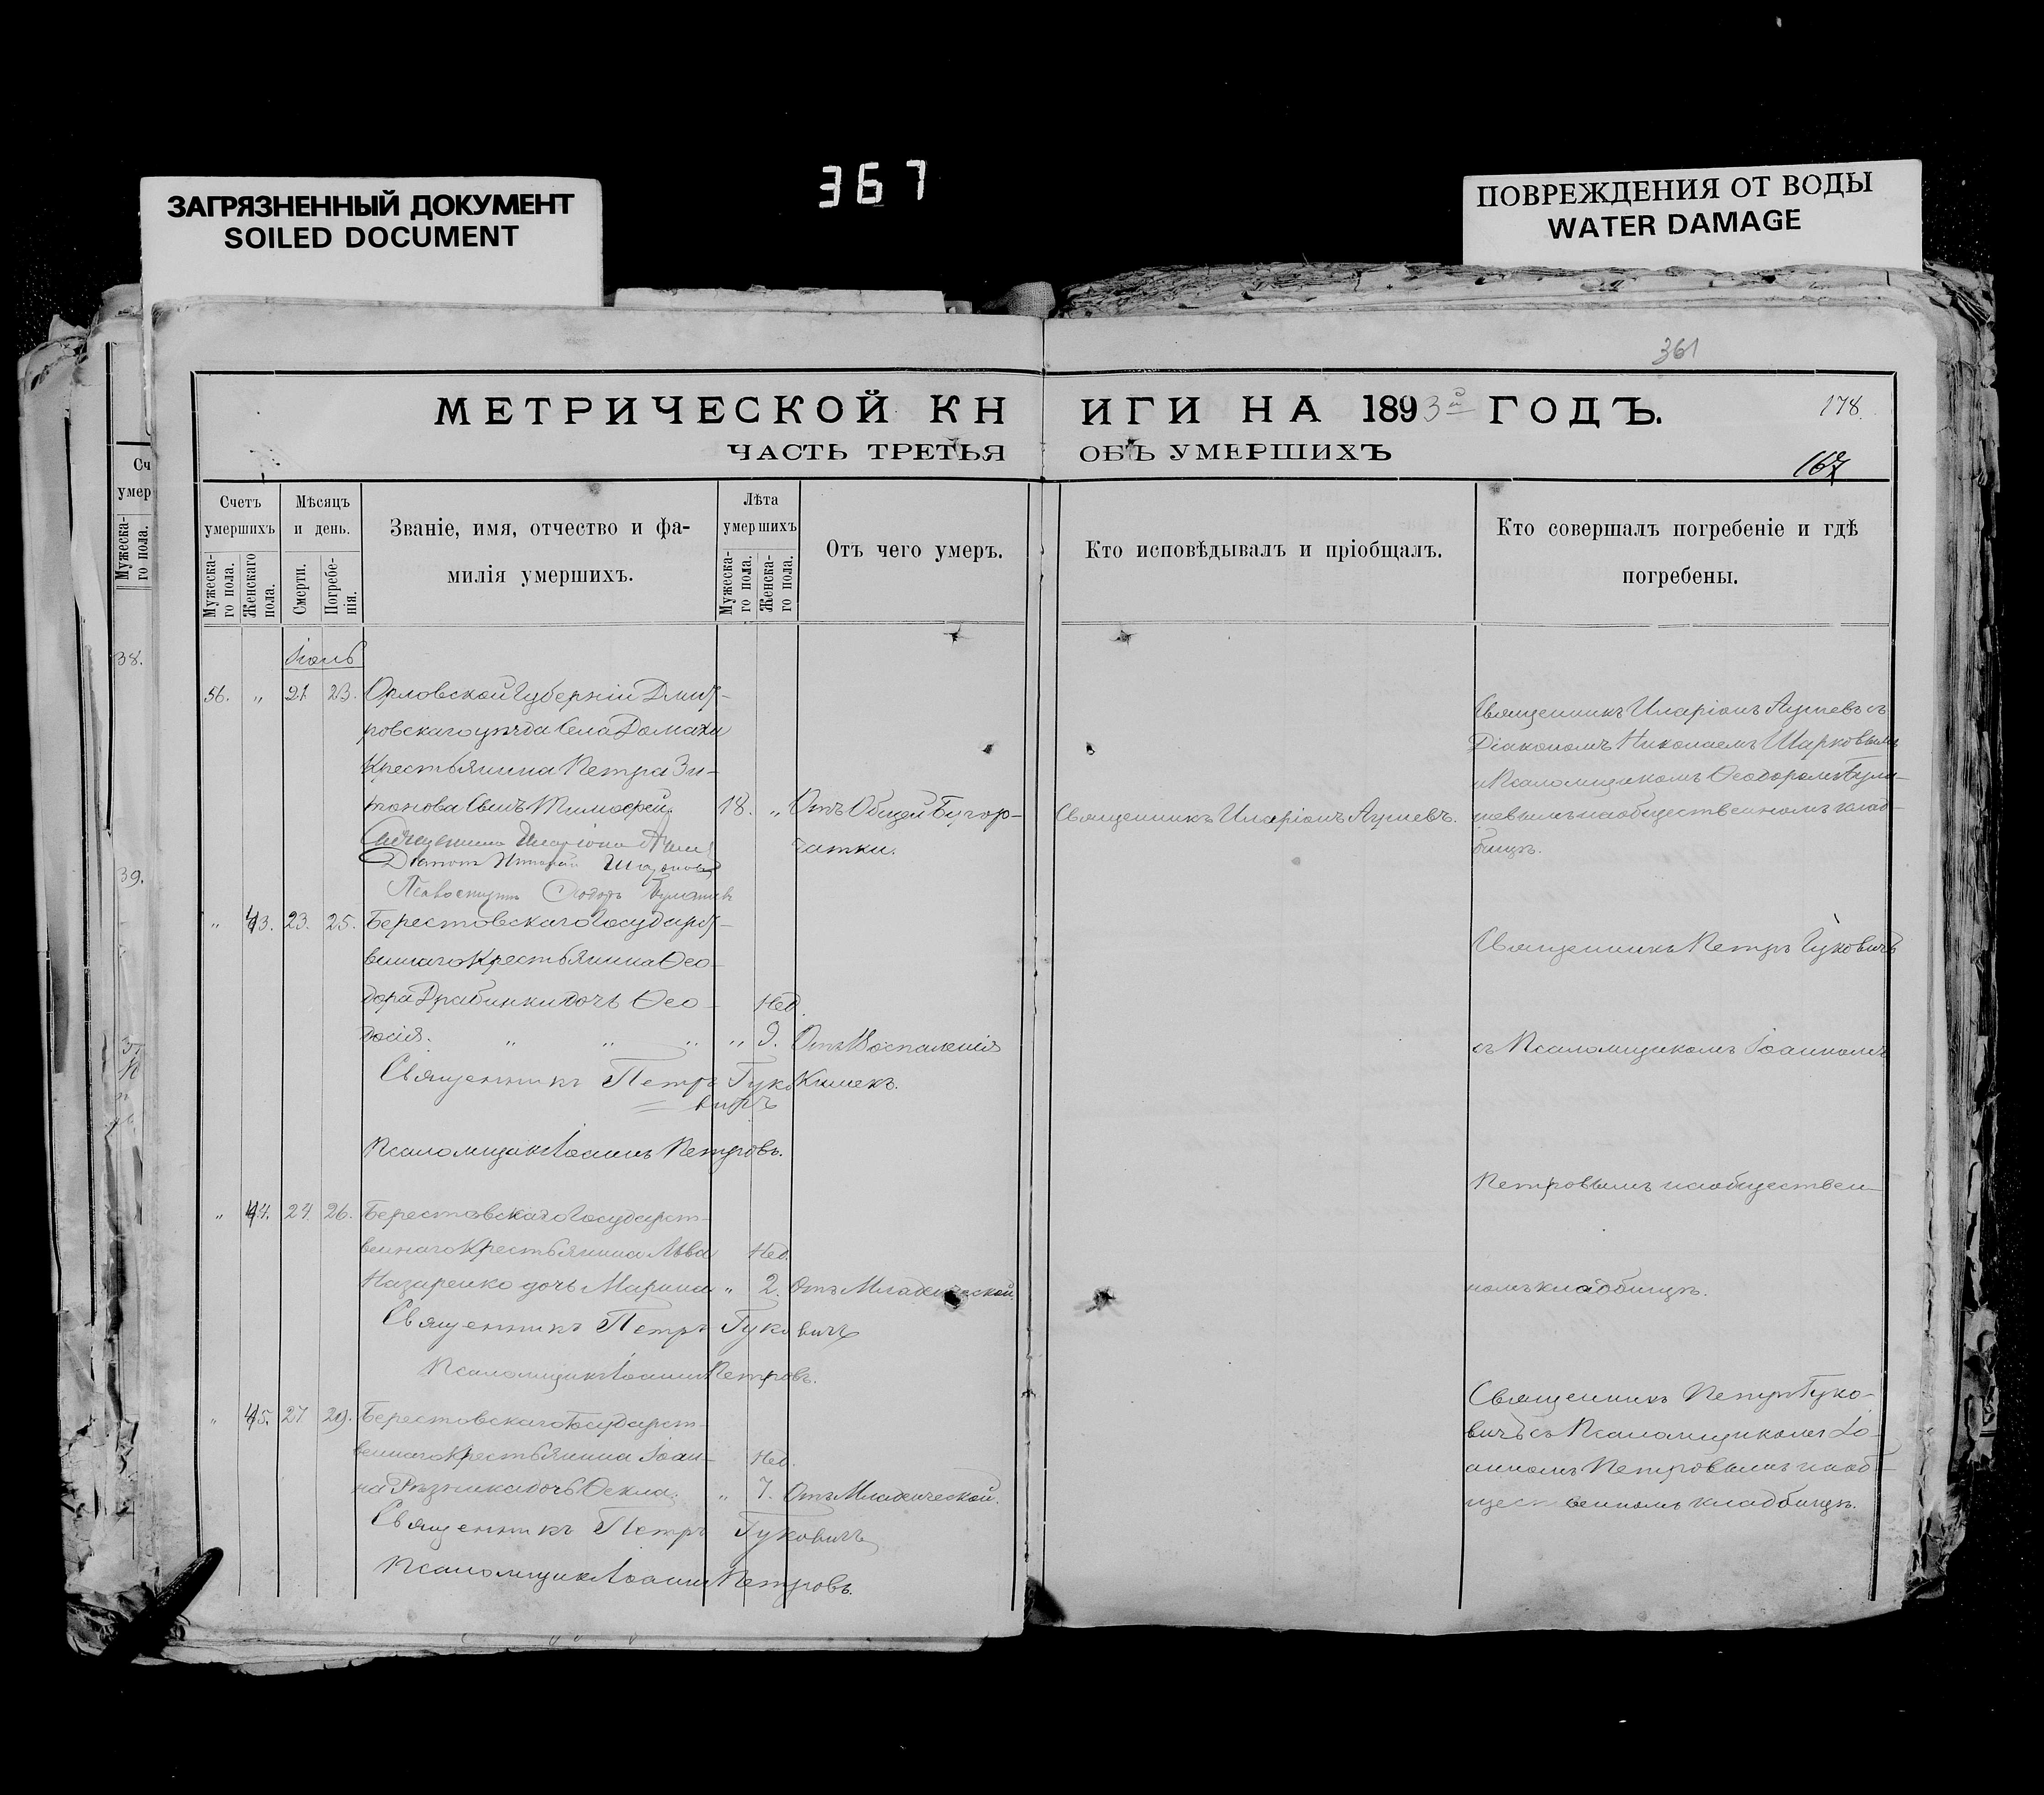 ЗАГРЯЗНЕННЫЙ ДОКУМЕНТ
SOILED DOCUMENT
367
ПОВРЕЖДЕНИЯ ОТ ВОДЫ
WATER DAMAGE
361
МЕТРИЧЕСКОЙ КНИГИ НА 1893й ГОДЪ.
178.
ЧАСТЬ ТРЕТЬЯ ОБЪ УМЕРШИХЪ
167
Счетъ умершихъ
Мужеска-го пола.
Женскаго пола.
Мѣсяцъ и день.
Смерти.
Погребе-нія.
Званіе, имя, отчество и фа-
милія умершихъ.
Лѣта умершихъ
Мужеска-го пола.
Женска-го пола.
Отъ чего умеръ.
Кто исповѣдывалъ и пріобщалъ.
Кто совершалъ погребеніе и гдѣ
погребены.
38.
39.
Іюль
56. „ 21. 23. Орловской Губерніи Дмит-
ровскаго уѣзда Села Домахи
Крестьянина Петра
сынъ Тимофей. 18. „ Отъ Общей Бугор-
чатки.
Священникъ Иларіонъ
Діаконъ Николай
Псаломщикъ
Священникъ Иларіонъ
Священникъ Иларіонъ съ
Діакономъ Николаемъ Шарковымъ
и Псаломщикомъ Ѳеодоромъ
на общественномъ клад-
бищѣ.
„ 43. 23. 25. Берестовскаго Государст-
веннаго Крестьянина Ѳео-
дора Драбинки дочь Ѳео- Нед.
досія. „ „ „ „ 9. Отъ Воспаленія
Кишекъ.
Священникъ Петръ Гуко
вичъ
Псаломщикъ Іоаннъ Петровъ.
Священникъ Петръ Гуковичъ
съ Псаломщикомъ Іоанномъ
Петровымъ на обществен-
номъ кладбищѣ.
„ 44. 24. 26. Берестовскаго Государст-
веннаго Крестьянина Льва Нед.
Назаренко дочь Марина „ 2. Отъ Младенческой.
Священникъ Петръ Гуковичъ
Псаломщикъ Іоаннъ Петровъ.
„ 45. 27 29. Берестовскаго Государст-
веннаго Крестьянина Іоан- Нед.
на Рѣзника дочь Ѳекла. „ 7. Отъ Младенческой.
Священникъ Петръ Гуковичъ
Псаломщикъ Іоаннъ Петровъ.
Священникъ Петръ Гуко-
вичъ съ Псаломщикомъ Іо-
анномъ Петровымъ на об-
щественномъ кладбищѣ.